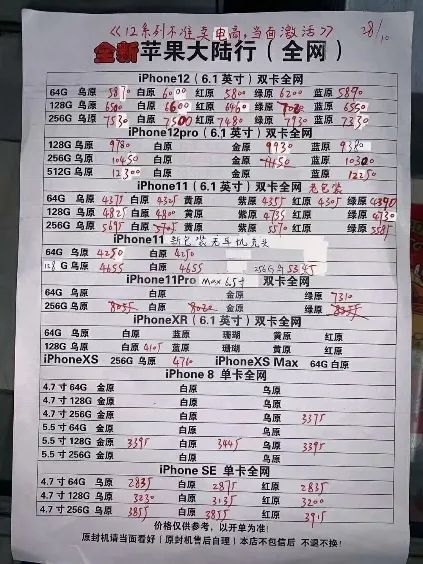 《12系列不准卖电商,当面激活》 28/10
全新苹果大陆行（全网）
iPhone12（6.1英寸）双卡全网
64G 乌原 5870 白原 6000 红原 5800 绿原 6200 蓝原 5890
128G 乌原 6500 白原 6600 红原 6460 绿原 蓝原 6550
256G 乌原 7530 白原 7500 红原 7480 绿原 7930 蓝原 7330
iPhone12pro（6.1英寸）双卡全网
128G 乌原 9780 白原 金原 9930 蓝原
256G 乌原 10450 白原 金原 蓝原
512G 乌原 12300 白原 金原 蓝原 12250
iPhone11（6.1英寸）双卡全网 老包装
64G 乌原 4375 白原 4325 黄原 紫原 4355 红原 4305 绿原 4390
128G 乌原 4825 白原 4800 黄原 紫原 4735 红原 绿原 4730
256G 乌原 5695 白原 5705 黄原 紫原 5570 红原 绿原 5585
iPhone11 新包装无耳机充头
64G 乌原 4250 白原 4250
128G 乌原 4655 白原 4655 256G乌 5345
iPhone11Pro Max 6.5寸 双卡全网
64G 乌原 白原 金原 绿原 7310
256G 乌原 8055 白原 8020 金原 绿原 8355
iPhoneXR（6.1英寸）双卡全网
64G 乌原 白原 蓝原 珊瑚 黄原 红原
128G 乌原 白原 4105 蓝原 珊瑚 黄原 红原
iPhoneXS 256G 乌原 4710 iPhoneXS Max 64G 白原
iPhone 8 单卡全网
4.7寸 64G 金原 白原 乌原
4.7寸 128G 金原 白原 乌原
4.7寸 256G 金原 白原 乌原 3375
5.5寸 64G 金原 白原 乌原
5.5寸 128G 金原 3395 白原 3445 乌原 3395
5.5寸 256G 金原 白原 乌原
iPhone SE 单卡全网
4.7寸 64G 乌原 2835 白原 2875 红原 2835
4.7寸 128G 乌原 3230 白原 3135 红原 3200
4.7寸 256G 乌原 3855 白原 3855 红原 3915
价格仅供参考，以开单为准!
原封机请当面看好（原封机售后自理）本店不包信后 不退不换!